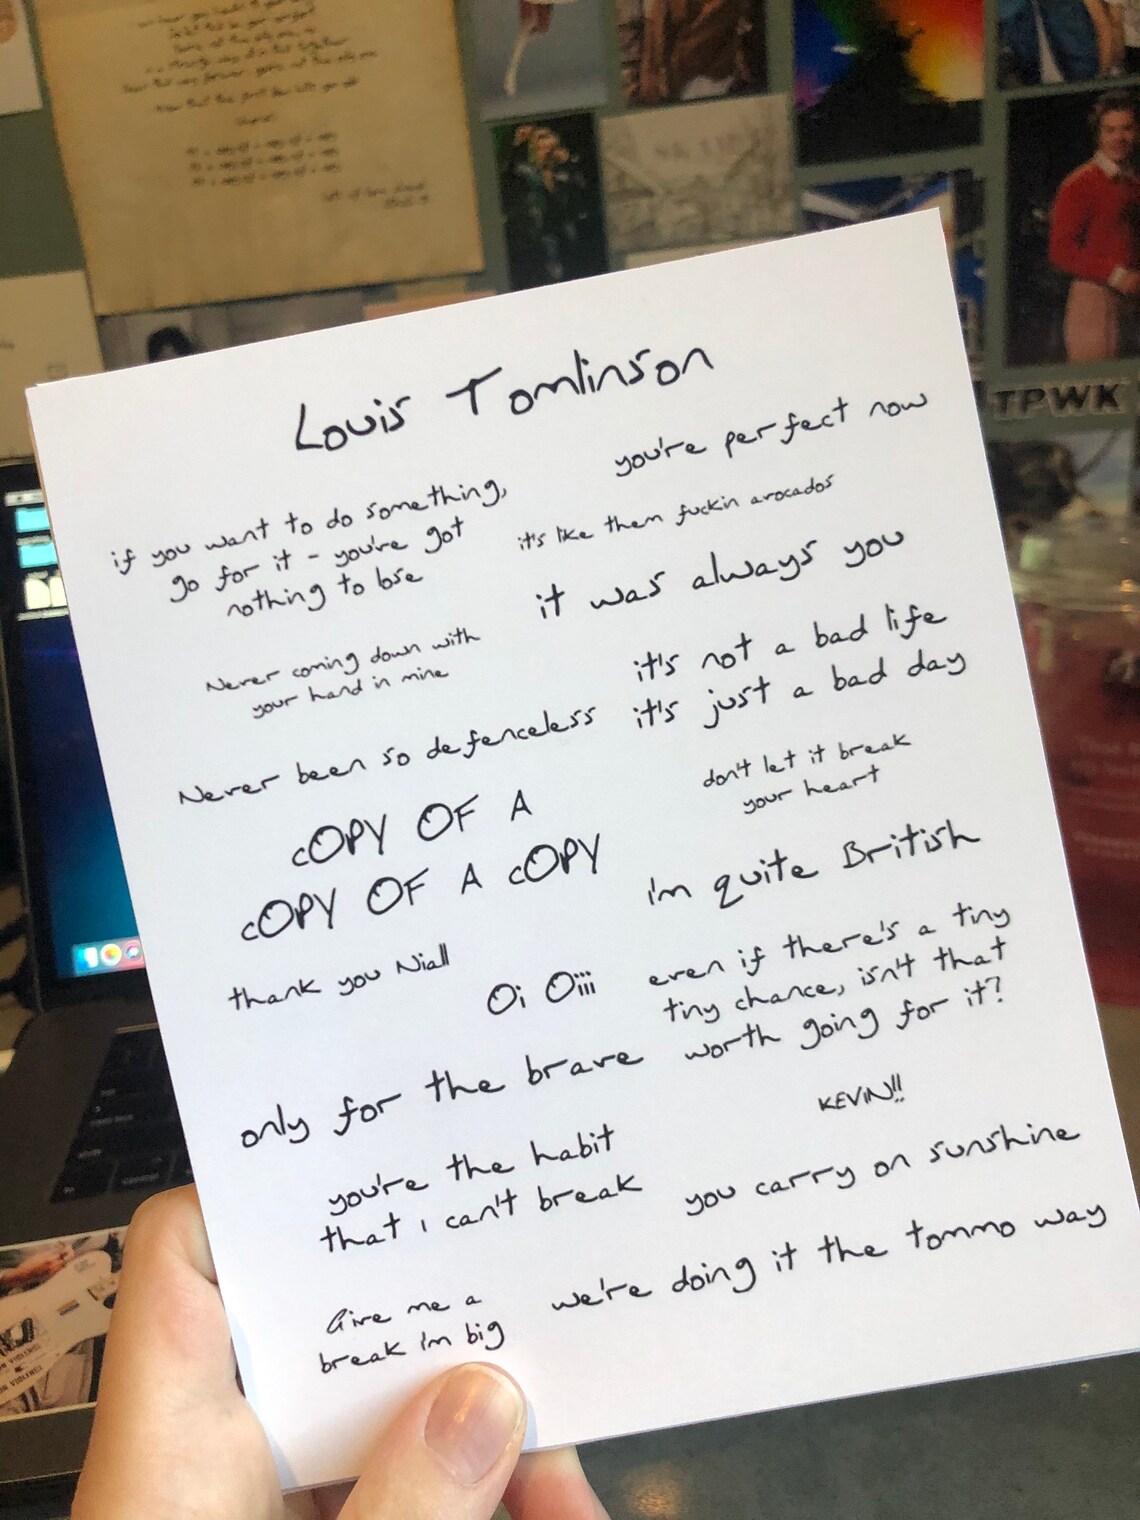 Louis Tomlinson
you're perfect now
if you want to do something,
go for it - you've got
nothing to lose
it's like them fuckin avocados
it was always you
Never coming down with
your hand in mine
it's not a bad life
it's just a bad day
Never been so defenceless
don't let it break
your heart
COPY OF A
COPY OF A COPY
i'm quite British
thank you Niall
Oi Oiii
even if there's a tiny
tiny chance, isn't that
worth going for it?
only for the brave
KEVIN!!
you're the habit
that i can't break
you carry on sunshine
we're doing it the tommo way
Give me a
break i'm big
TPWK